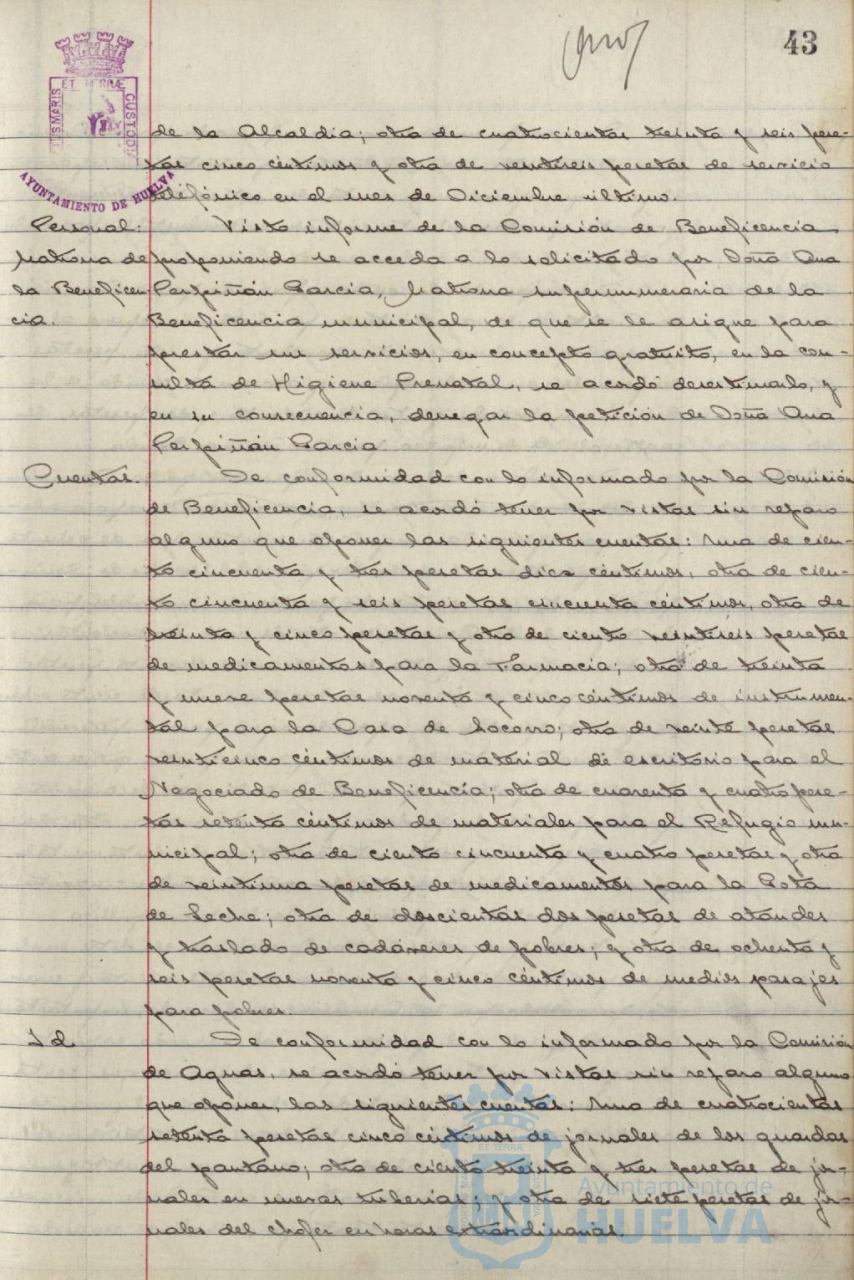 43
PORTUS MARIS ET TERRÆ CUSTODIA
AYUNTAMIENTO DE HUELVA
de la Alcaldia; otra de cuatrocientas treinta y seis pese-
tas cinco céntimos y otra de veintiseis pesetas de servicio
telefónico en el mes de Diciembre último.
Personal:
Matrona de
la Beneficen-
cia.
Visto informe de la Comisión de Beneficencia,
proponiendo se acceda a lo solicitado por Doña Ana
Perpiñán Garcia, Matrona supernumeraria de la
Beneficencia municipal, de que se le asigne para
prestar sus servicios, en concepto gratuito, en la con-
sulta de Higiene Prenatal, se acordó desestimarlo, y
en su consecuencia, denegar la petición de Doña Ana
Perpiñán Garcia
Cuentas.
De conformidad con lo informado por la Comisión
de Beneficencia, se acordó tener por vistas sin reparo
alguno que oponer las siguientes cuentas: Una de cien-
to cincuenta y tres pesetas diez céntimos, otra de cien-
to cincuenta y seis pesetas cincuenta céntimos, otra de
treinta y cinco pesetas y otra de ciento veintiseis pesetas
de medicamentos para la Farmacia; otra de treinta
y nueve pesetas noventa y cinco céntimos de instrumen-
tal para la Casa de Socorro; otra de veinte pesetas
veinticinco céntimos de material de escritorio para el
Negociado de Beneficencia; otra de cuarenta y cuatro pese-
tas setenta céntimos de materiales para el Refugio mu-
nicipal; otra de ciento cincuenta y cuatro pesetas y otra
de veintiuna pesetas de medicamentos para la Gota
de Leche; otra de doscientas dos pesetas de ataudes
y traslado de cadáveres de pobres; y otra de ochenta y
seis pesetas noventa y cinco céntimos de medios pasajes
para pobres.
Id.
De conformidad con lo informado por la Comisión
de Aguas, se acordó tener por vistas sin reparo alguno
que oponer, las siguientes cuentas: Una de cuatrocientas
setenta pesetas cinco céntimos de jornales de los guardas
del pantano; otra de ciento treinta y tres pesetas de jor-
nales en nuevas tuberias; y otra de siete pesetas de jor-
nales del chofer en horas extraordinarias.
Ayuntamiento de
HUELVA